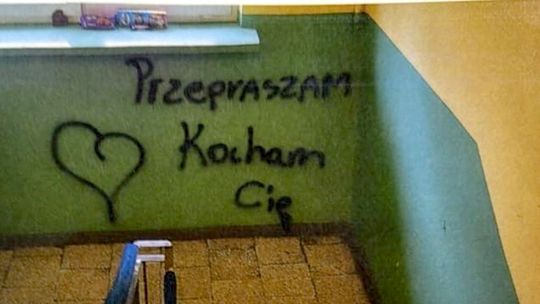 Przepraszam
Kocham
Cię